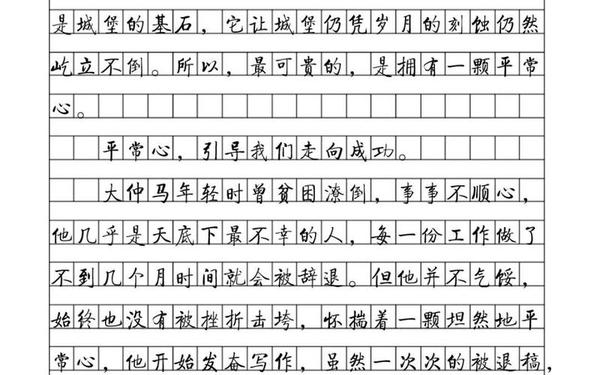 是城堡的基石，它让城堡仍凭岁月的刻蚀仍然
屹立不倒。所以，最可贵的，是拥有一颗平常
心。
平常心，引导我们走向成功。
大仲马年轻时曾贫困潦倒，事事不顺心，
他几乎是天底下最不幸的人，每一份工作做了
不到几个月时间就会被辞退。但他并不气馁，
始终也没有被挫折击垮，怀揣着一颗坦然地平
常心，他开始发奋写作，虽然一次次的被退稿，